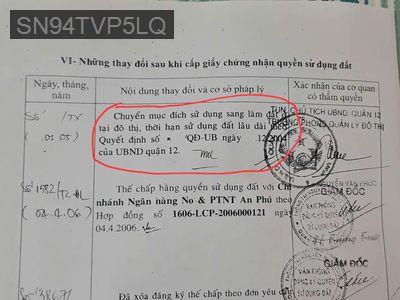 SN94TVP5LQ
VI- Những thay đổi sau khi cấp giấy chứng nhận quyền sử dụng đất
Ngày, tháng, năm
Nội dung thay đổi và cơ sở pháp lý
Xác nhận của cơ quan có thẩm quyền
Số /TX
01.05)
Chuyển mục đích sử dụng sang làm đất ở
tại đô thị, thời hạn sử dụng đất lâu dài theo
Quyết định số /QĐ-UB ngày .12.2004
của UBND quận 12.
TUN. CHỦ TỊCH UBND QUẬN 12
TRƯỞNG PHÒNG QUẢN LÝ ĐÔ THỊ
Số 1582/
(04.4.06)
Thế chấp bằng quyền sử dụng đất với Chi
nhánh Ngân hàng No & PTNT An Phú theo
Hợp đồng số 1606-LCP-2006000121 ngày
04.4.2006.
GIÁM ĐỐC
VĂN PHÒNG
ĐĂNG KÝ
Đã xóa đăng ký thế chấp theo đơn yêu cầu
GIÁM ĐỐC
VĂN PHÒNG
ĐĂNG KÝ